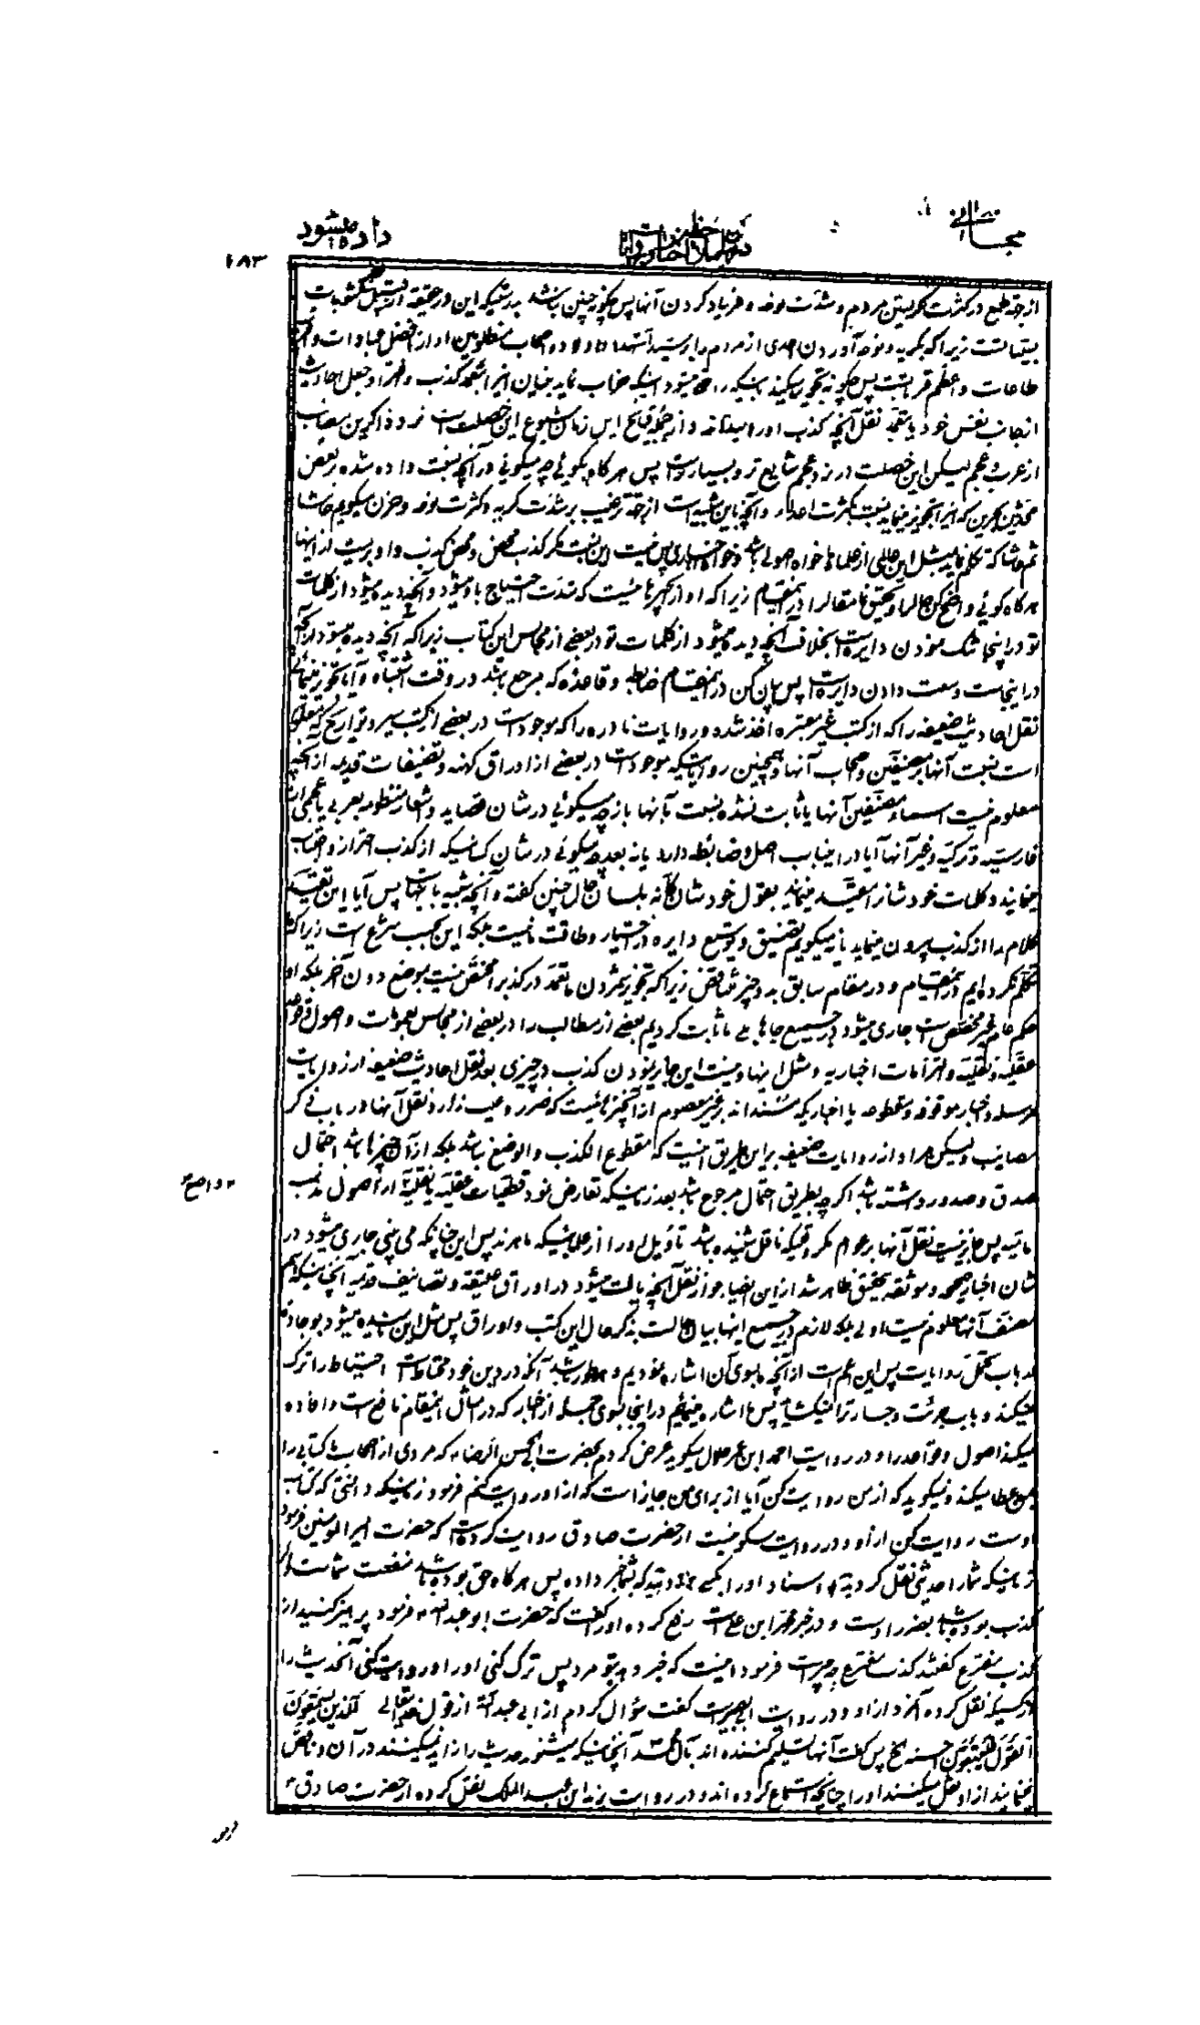 داده میشود
۱۸۳
از جهة طمع در کثرت گریستن مردم و شدت نوحه و فریاد کردن آنها پس چگونه چنین نباشد بدرستیکه این در حقیقة از قبیل
زیرا که بگریه و نوحه آوردن احدی از مردم را برای سید الشهداء و اولاد و اصحاب مظلومین او از افضل عبادات و
طاعات و اعظم قربات است پس چگونه تجویز میکنید اینکه کذب و افترا و جعل احادیث
از جانب نفس خود یا بتعمد نقل آنچه کذب او را میدانند و از جمله قبایح این زمان شیوع این خصلت است نزد ذاکرین مصائب
از عرب و عجم لیکن این خصلت در نزد عجم شایع تر و بسیار است پس هر گاه بگوئی چه میگوئی در آنچه نسبت داده شده ببعض
محدثین بحرین که نسبت بکثرت اعداء و آنچه باین شبیه است از جهة ترغیب بر شدت گریه و کثرت نوحه و حزن میگویم حاشا
ثم حاشا که تکلم نماید بمثل این عالمی از علماء خواه اصولی باشد و خواه اخباری پس نیست این نسبت مگر کذب محض
هر گاه گوئی واضح کن حال را و تحقیق نما مقال را در این مقام زیرا که او از چیزهائیست که شدت احتیاج باو میشود و آنچه دیده میشود از کلمات
تو در اینجا تنگ نمودن دایره است بخلاف آنچه دیده میشود از کلمات تو در بعضی از مجالس این کتاب زیرا که آنچه دیده میشود
در اینجا است وسعت دادن دایره است پس بیان کن در این مقام ضابطه و قاعده که مرجع باشد در وقت اشتباه و آیا تجویز
نقل احادیث ضعیفه را که از کتب غیر معتبره اخذ شده و روایات نادره را که موجود است در بعضی از کتب سیر و تواریخ که
است نسبت آنها بمصنفین و اصحاب آنها و همچنین روایاتیکه موجود است در بعضی از اوراق کهنه و تصنیفات قدیمه از آنچه
معلوم نیست اسماء مصنفین آنها یا ثابت نشده نسبت بآنها باز چه میگوئی در شان قصاید و اشعار منظومه بعربی یا عجمی
فارسیه و ترکیه و غیر آنها آیا در این باب اصل و ضابطه دارد یا نه بعد چه میگوئی در شان کسانیکه از کذب احتراز و اجتناب
مینمایند و کلمات خودشان را مقید مینمایند بقول خودشان کأنه بلسان حال چنین گفته و آنچه شبیه باینهاست پس آیا این تقیید
کلام را از کذب بیرون مینماید یا نه میگویم تضییق و توسیع دایره در اختیار و طاقت ما نیست بلکه این بحسب شرع است زیرا که
تکلم نکرده ایم در این مقام و در مقام سابق به دو چیز متناقض زیرا که تجویز نکردن ما تعمد در کذب را مختص نیست بموضع دون آخر بلکه او
حکم عام غیر مختص است جاری میشود در جمیع جاها بلی ما ثابت کردیم بعضی از مطالب را در بعضی از مجالس بعمومات و اصول و قواعد
عقلیه و نقلیه و التزامات اخباریه و مثل اینها و نیست این جایز نمودن کذب در چیزی بعد نقل احادیث ضعیفه از روایات
مرسله و اخبار موقوفه و مقطوعه یا اخباریکه مسندانه بر غیر معصوم از آنچیزهائیست که ضرر و عیب ندارد نقل آنها در باب ذکر
مصائب و لیکن مراد از روایات ضعیفه بر این طریق نیست که مقطوع الکذب و الوضع باشد بلکه از آن چیزها باشد احتمال
صدق و صدور داشته باشد اگر چه بطریق احتمال مرجوح باشد بعد زمانیکه تعارض نمود قطعیات عقلیه یا نقلیه از اصول مذهب
امامیه پس جایز نیست نقل آنها بر عوام مگر وقتیکه ناقل شنیده باشد تاویل او را از علمائیکه ماهرند پس این چنانکه می بینی جاری میشود در
شان اخبار صحیحه و موثقه بتحقیق ظاهر شد از این ایضا جواز نقل آنچه یافت میشود در اوراق عتیقه و تصانیف قدیمه آنچنانیکه اسم
مصنف آنها معلوم نیست اولی بلکه لازم در جمیع اینها بیان حالت بذکر حال این کتب و اوراق پس مثل این نامیده میشود بوجاده
در باب تحمل روایات پس این اعم است از آنچه بسوی آن اشاره نمودیم آنکه در دین خود محتاط است احتیاط را ترک
نمیکند و باب جرئت و جسارت را نمیگشاید پس ما اشاره مینمائیم در اینجا بسوی جمله از اخبار که در امثال این مقام نافع است و افاده
میکند اصول و قواعد را و در روایت احمد ابن عمر حلال میگوید عرض کردم بحضرت ابی الحسن الرضا ع که مردی از اصحاب ما کتابی را
بمن عطا میکند و نمیگوید که از من روایت کن آیا از برای من جایز است که از او روایت کنم فرمود زمانیکه دانستی که کتاب
اوست روایت کن از او و در روایت سکونیست از حضرت صادق روایت کرده است که حضرت امیر المومنین فرمود
زمانیکه شما را حدیثی نقل کردید اسناد او را بکسی بدهید که بشما خبر داده پس هر گاه حق بوده باشد منفعت شما است و اگر
کذب بوده باشد بضرر اوست و در خبر محمد ابن علی است رفع کرده او را گفت که حضرت ابو عبد الله ع فرمود پرهیز کنید از
کذب مفترع گفتند کذب مفترع چه چیز است فرمود اینست که خبر دهد بتو مرد پس ترک کنی او را و روایت کنی آنحدیث را
از کسیکه نقل کرده آنمرد از او و در روایت ابی بصیر است گفت سؤال کردم از ابی عبد الله ع از قول خدایتعالی الَّذِینَ یَسْتَمِعُونَ
الْقَوْلَ فَیَتَّبِعُونَ اَحْسَنَهُ الخ پس گفت آنها تسلیم کننده اند بآل محمد آنچنانیکه میشنوند حدیث را زاید نمیکنند در آن و ناقص
نمینمایند از او نقل میکنند او را چنانچه استماع کرده اند و در روایت یزید ابن عبد الملک نقل کرده از حضرت صادق ع